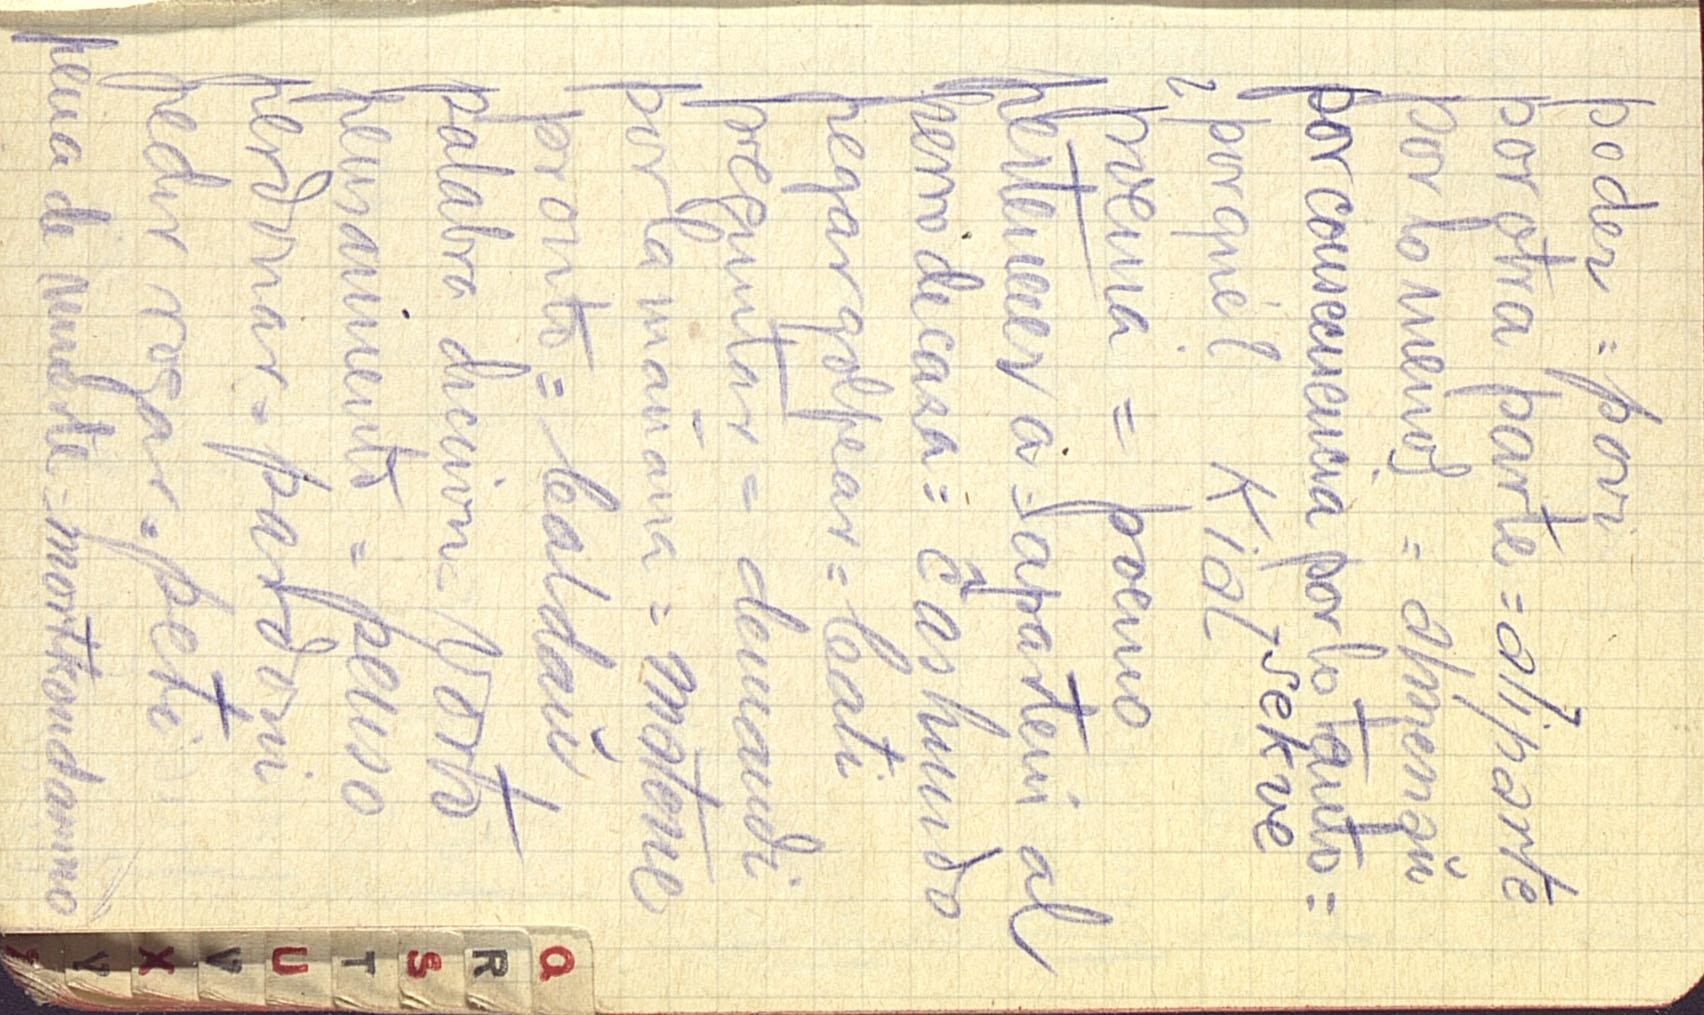 poder = povi
por otra parte = aliparte
por lo menos = almenaŭ
por consecuencia por lo tanto =
sekve
¿porqué? Kial
poema = poemo
pertenecer a = aparteni al
perro de caza = ĉashundo
pegar golpear = bati
preguntar = demandi
por la mañana = matene
pronto = baldaŭ
palabra diccion = vorto
pensamiento = penso
perdonar = pardoni
pedir rogar = peti
pena de muerte = mortkondamno
Q
R
S
T
U
V
X
Y